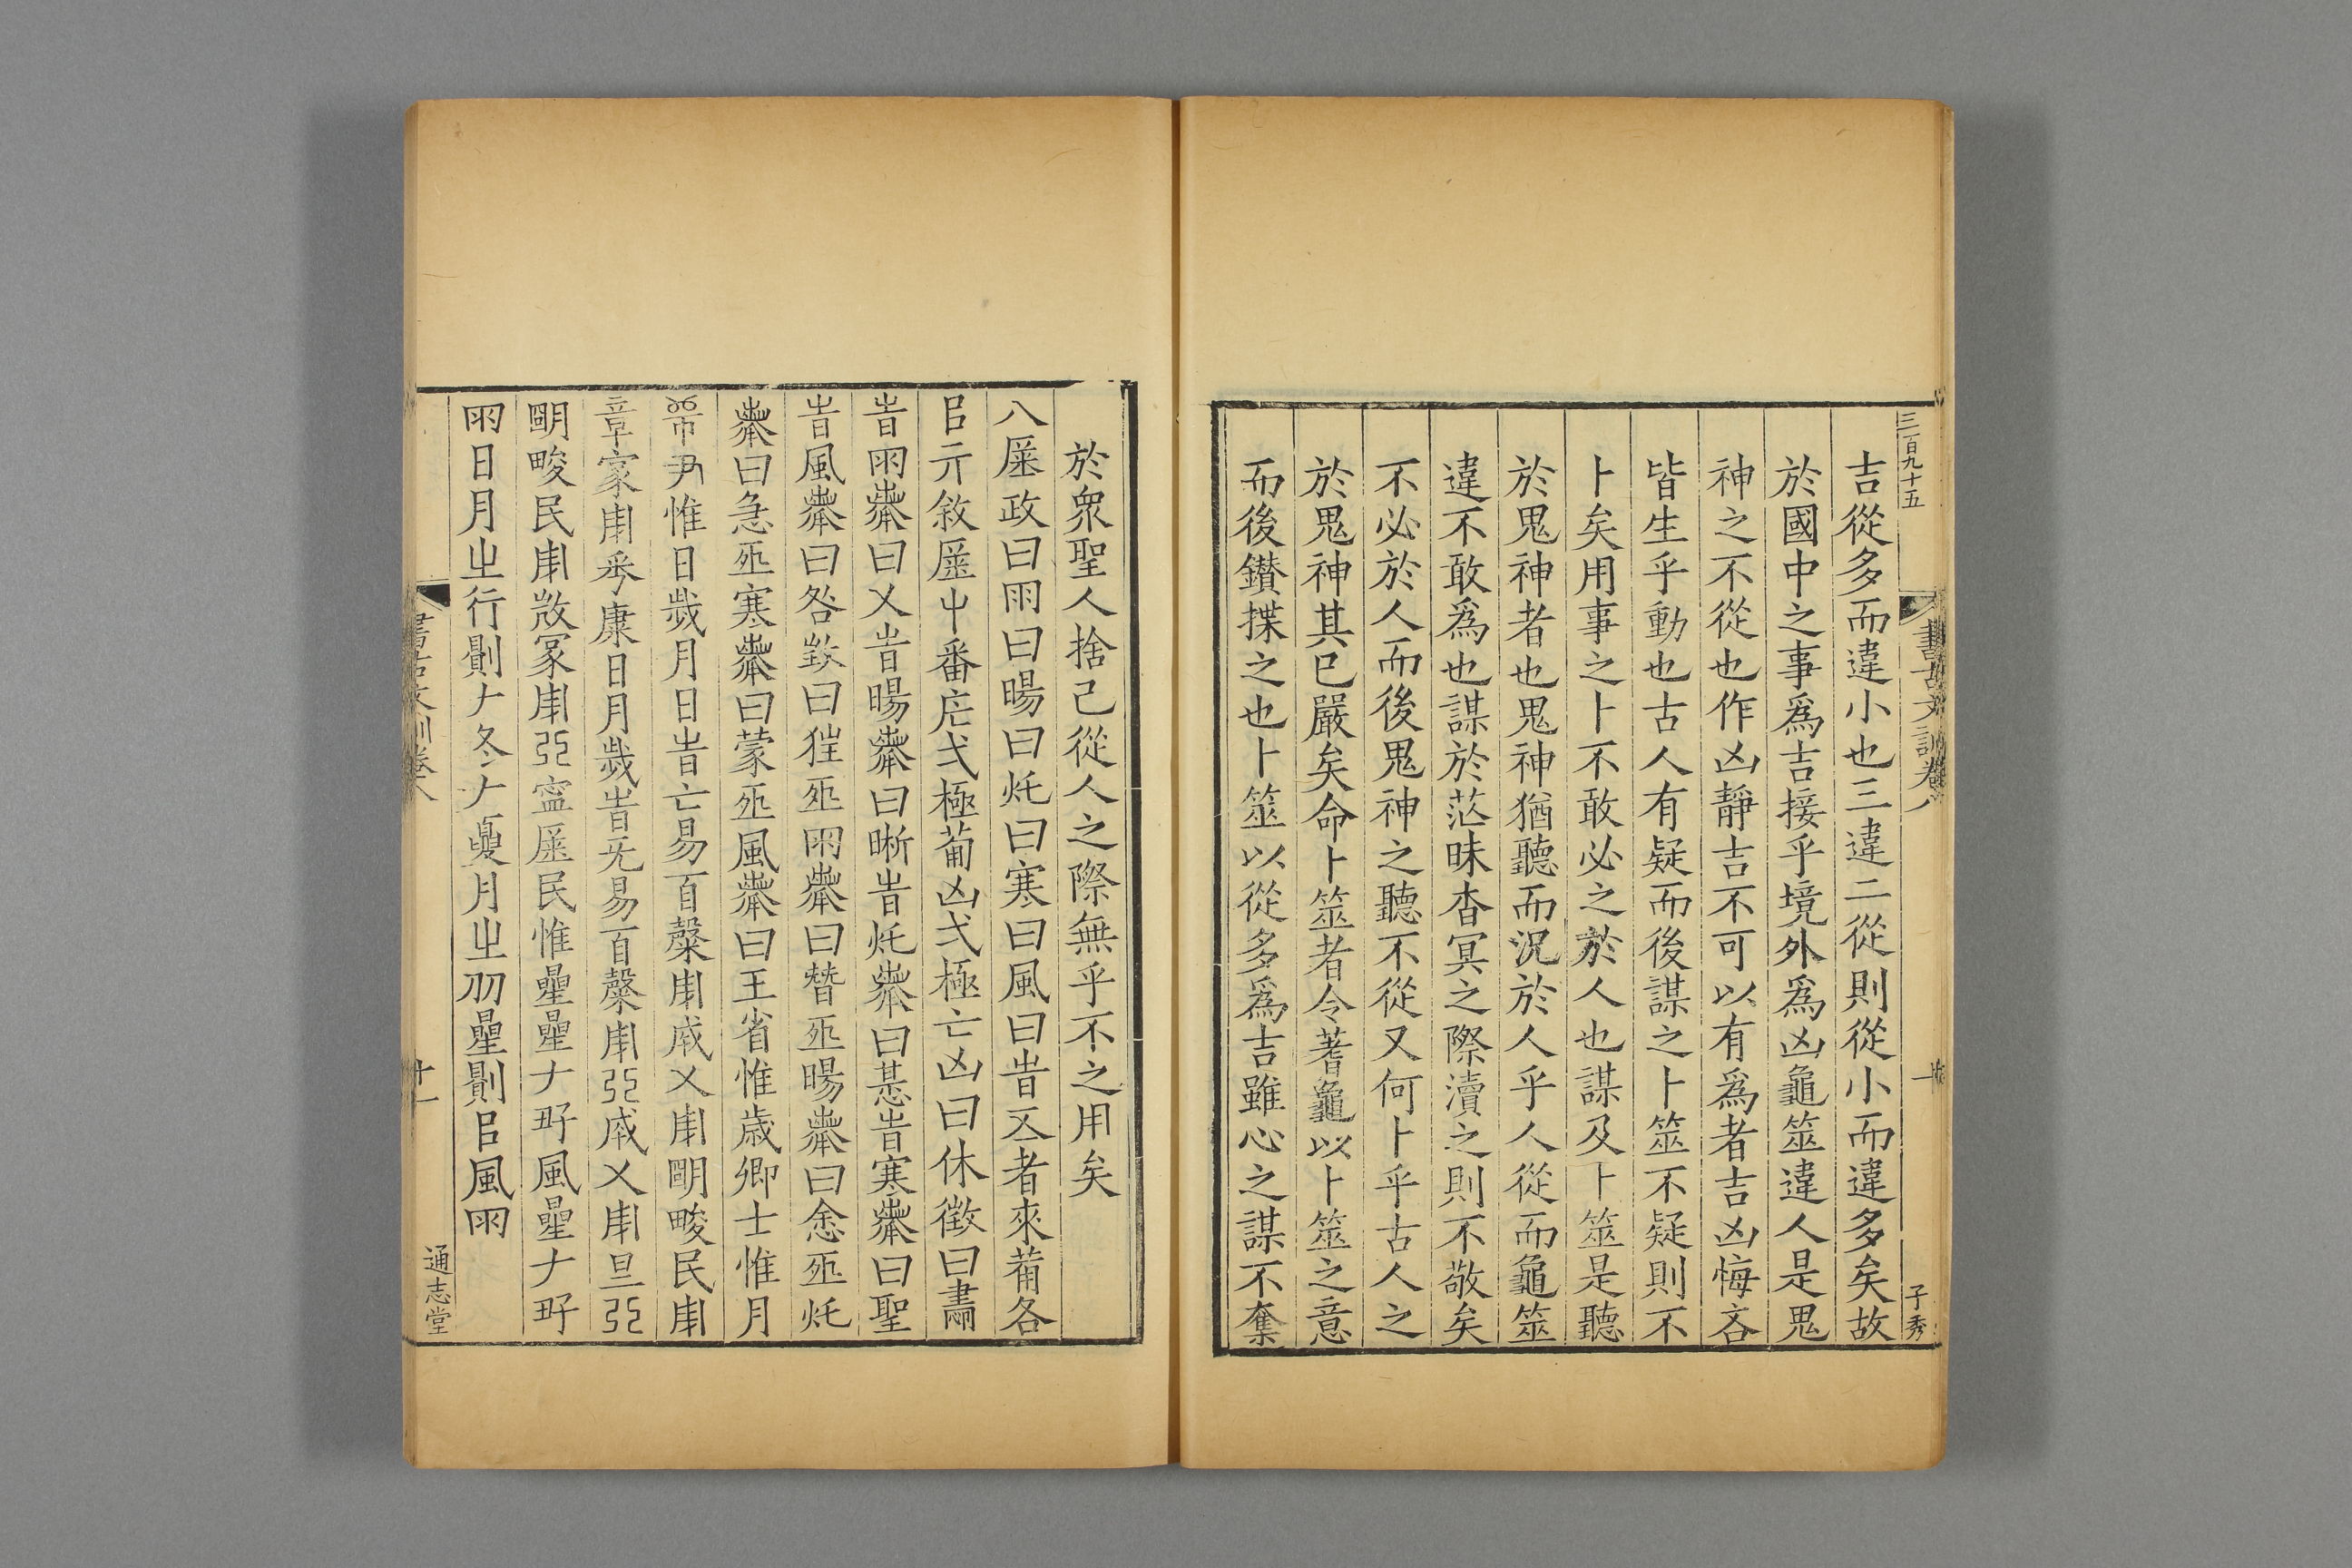 三百九十五
書古文訓卷八
子秀
吉從多而違小也三違二從則從小而違多矣故
於國中之事爲吉接乎境外爲凶龜筮違人是鬼
神之不從也作凶靜吉不可以有爲者吉凶悔吝
皆生乎動也古人有疑而後謀之卜筮不疑則不
卜矣用事之卜不敢必之於人也謀及卜筮是聽
於鬼神者也鬼神猶聽而況於人乎人從而龜筮
違不敢爲也謀於茫昧杳冥之際瀆之則不敬矣
不必於人而後鬼神之聽不從又何卜乎古人之
於鬼神其已嚴矣命卜筮者令蓍龜以卜筮之意
而後鑚揲之也卜筮以從多爲吉雖心之謀不奪
於衆聖人捨己從人之際無乎不之用矣
八庶政曰雨曰暘曰灹曰寒曰風曰旹五者來葡各
㠯亓敘庶屮番庑弌極葡凶弌極亡凶曰休徵曰肅
旹雨曰乂旹暘曰晰旹曰惎旹寒曰聖
旹風曰咎曰狂雨曰朁暘曰念
曰急寒曰蒙風曰王省惟歳卿士惟月
惟日歲月日旹亡易百用乂用朙畯民用
章家用康日月歲旹无易百用乂用旦
朙畯民用家用寍庶民惟曐曐𠂇好風曐𠂇好
雨日月㞢行𠟭𠂇冬𠂇夓月㞢刅曐𠟭㠯風雨
書古文訓卷八
十一
通志堂